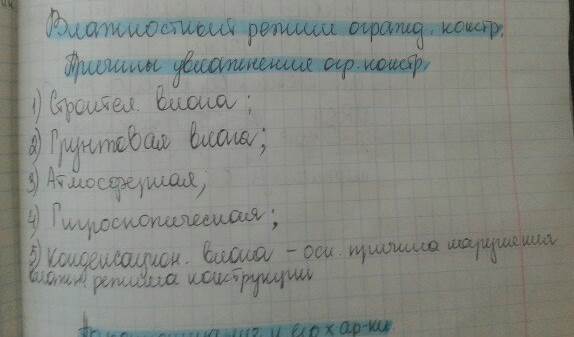 Влажностный режим огражд. констр.
Причины увлажнения огр. констр.
1) Строител влага;
2) Грунтовая влага;
3) Атмосферная;
4) Гигроскопическая;
5) Конденсацион. влага – осн. причина нарушения
влажн. режима конструкции
и его хар-ки